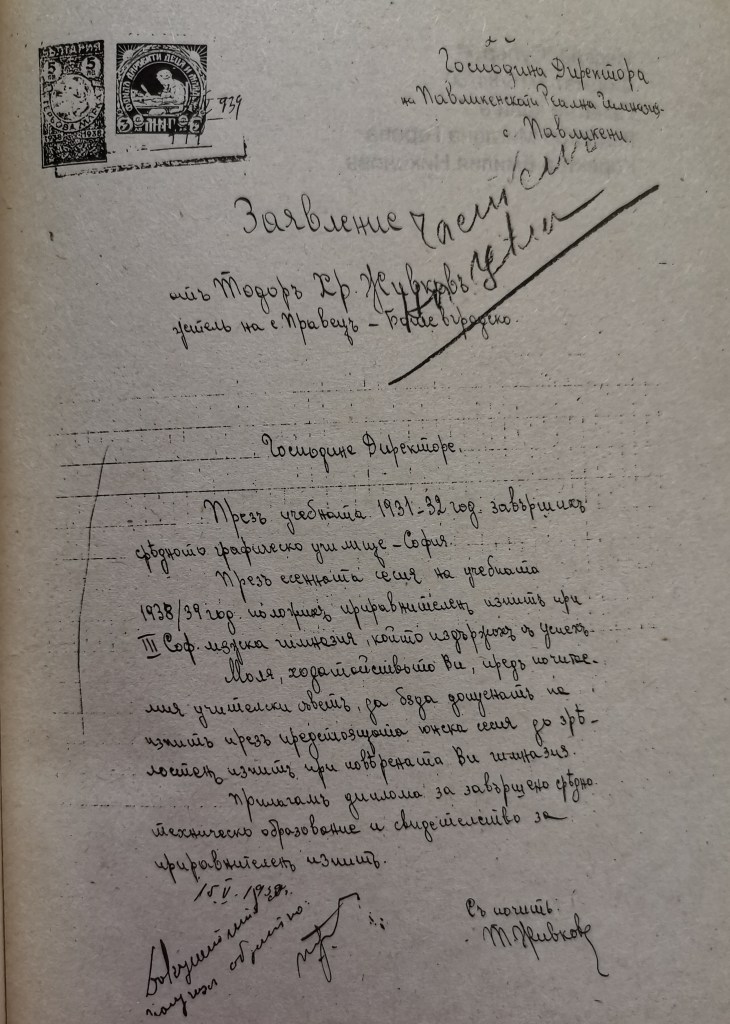 БЪЛГАРИЯ
5 5
ЛВ ЛВ
ГЕРБОВА МАРКА
1938
ФОНДЪ ДАРОВИТИ ДЕЦА
3 МНП 3
939
Господина Директора
на Павликенската Реална Гимназия
с. Павликени
Заявление
Частенъ
отъ Тодоръ Хр. Живковъ
жител на с. Правецъ – Ботевградско.
Господине Директоре,
Презъ учебната 1931-32 год. завършихъ
срѣдното графическо училище – София.
Презъ есенната сесия на учебната
1938/39 год. положихъ приравнителенъ изпитъ при
III Соф. мѫжка гимназия, който издържахъ съ успехъ.
Моля, ходатайството Ви, предъ почитае-
мия учителски съветъ, да бѫда допуснатъ на
изпитъ презъ предстоящата юнска сесия до зрѣ-
лостенъ изпитъ при повѣрената Ви гимназия.
Прилагамъ диплома за завършено срѣдно
техническо образование и свидетелство за
приравнителенъ изпитъ.
15.V.1939.
Документитѣ
получих обратно.
Съ почитъ:
Т. Живковъ